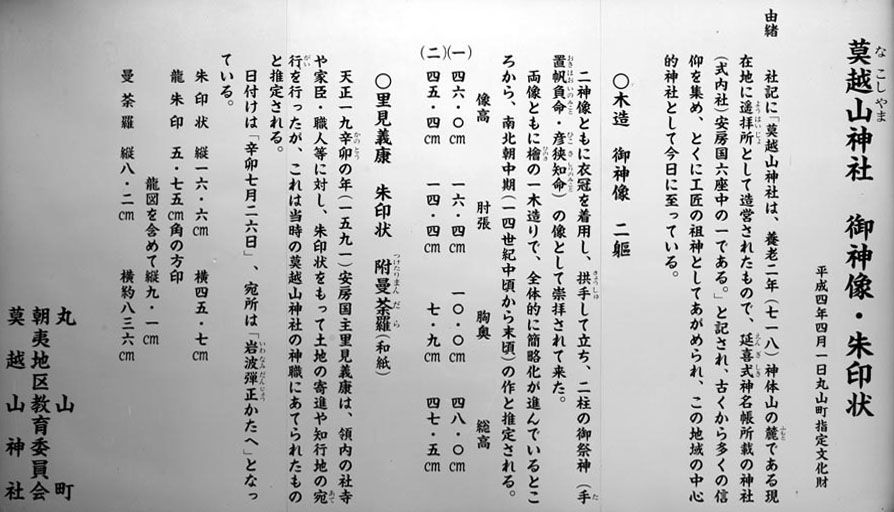 莫越山神社　御神像・朱印状
なこしやま
平成四年四月一日丸山町指定文化財
由緒　社記に「莫越山神社は、養老二年（七一八）神体山の麓である現
ふもと
在地に遥拝所として造営されたもので、延喜式神名帳所載の神社
ようはいじょ　えんぎしき
（式内社）安房国六座中の一である。」と記され、古くから多くの信
仰を集め、とくに工匠の祖神としてあがめられ、この地域の中心
的神社として今日に至っている。
○木造　御神像　二軀
二神像ともに衣冠を着用し、拱手して立ち、二柱の御祭神（手
きょうしゅ　た
置帆負命・彦狭知命）の像として崇拝されて来た。
おきほおいのみこと　ひこさしりのみこと
両像ともに檜の一木造りで、全体的に簡略化が進んでいるとこ
ひのき
ろから、南北朝中期（一四世紀中頃から末頃）の作と推定される。
像高　肘張　胸奥　総高
（一）四六・〇㎝　一六・四㎝　一〇・〇㎝　四八・〇㎝
（二）四五・四㎝　一四・四㎝　七・九㎝　四七・五㎝
○里見義康　朱印状　附曼荼羅（和紙）
つけたりまんだら
天正一九辛卯の年（一五九一）安房国主里見義康は、領内の社寺
かのとう
や家臣・職人等に対し、朱印状をもって土地の寄進や知行地の宛
あて
行を行ったが、これは当時の莫越山神社の神職にあてられたもの
がい
と推定される。
日付けは「辛卯七月二六日」、宛所は「岩波弾正かたへ」となっ
いわなみだんじょう
ている。
朱印状　縦一六・六㎝　横四五・七㎝
龍朱印　五・七五㎝角の方印
龍図を含めて縦九・一㎝
曼荼羅　縦八・二㎝　横約八三六㎝
丸山町
朝夷地区教育委員会
莫越山神社